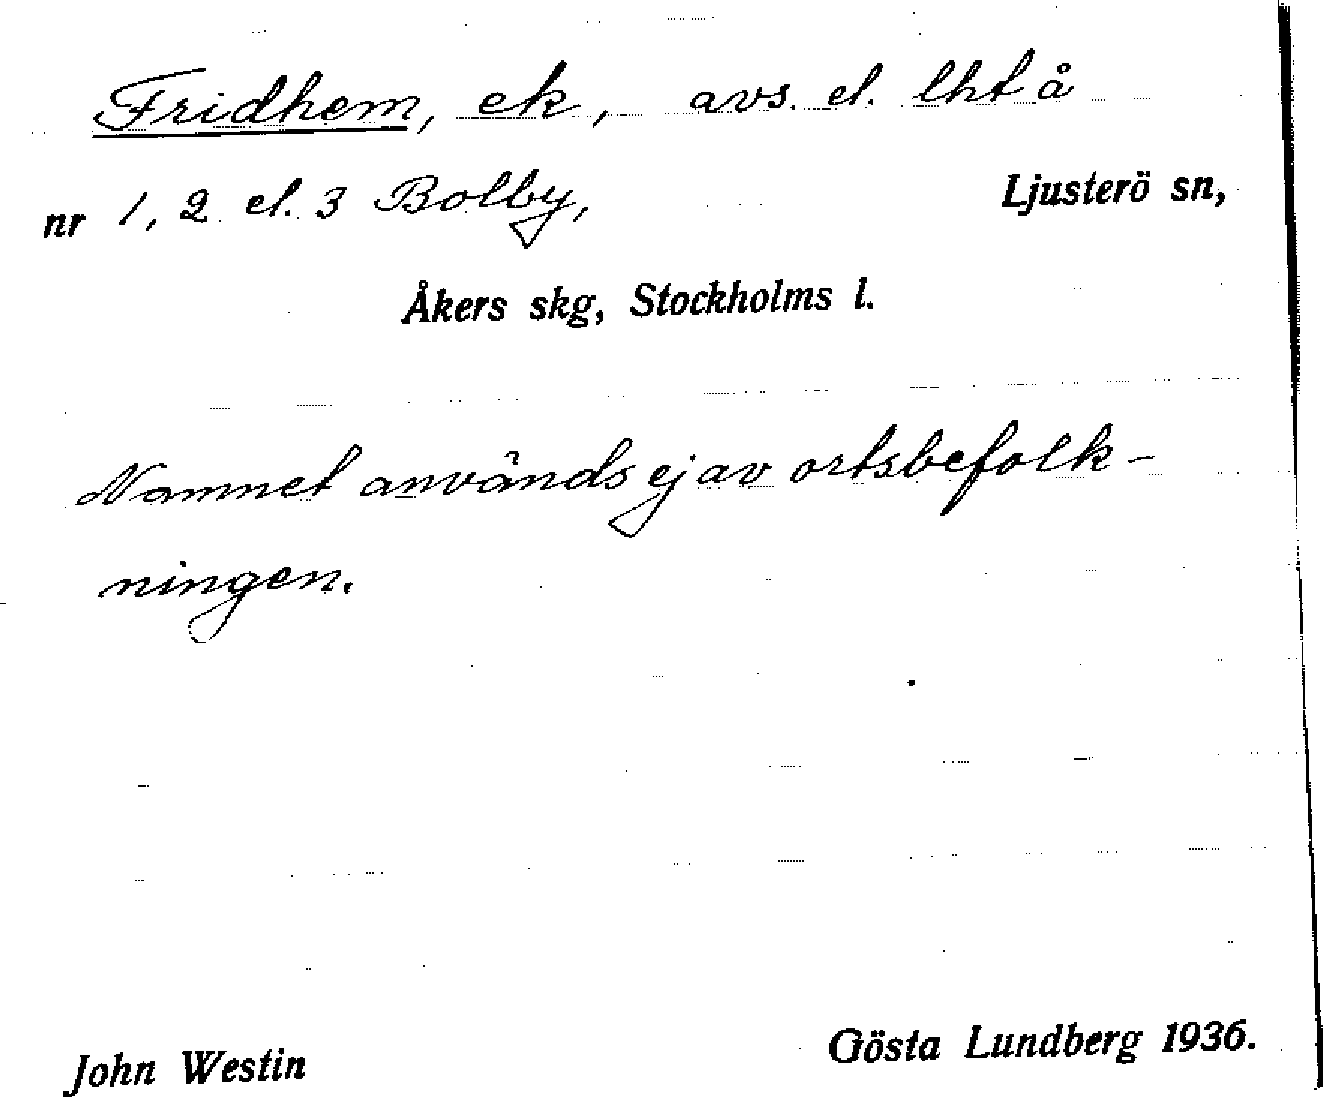 Fridhem, ek, avs. el. lht å
nr 1, 2 el. 3 Bolby, Ljusterö sn,
Åkers skg, Stockholms l.
Namnet används ej av ortsbefolk-
ningen.
John Westin Gösta Lundberg 1936.